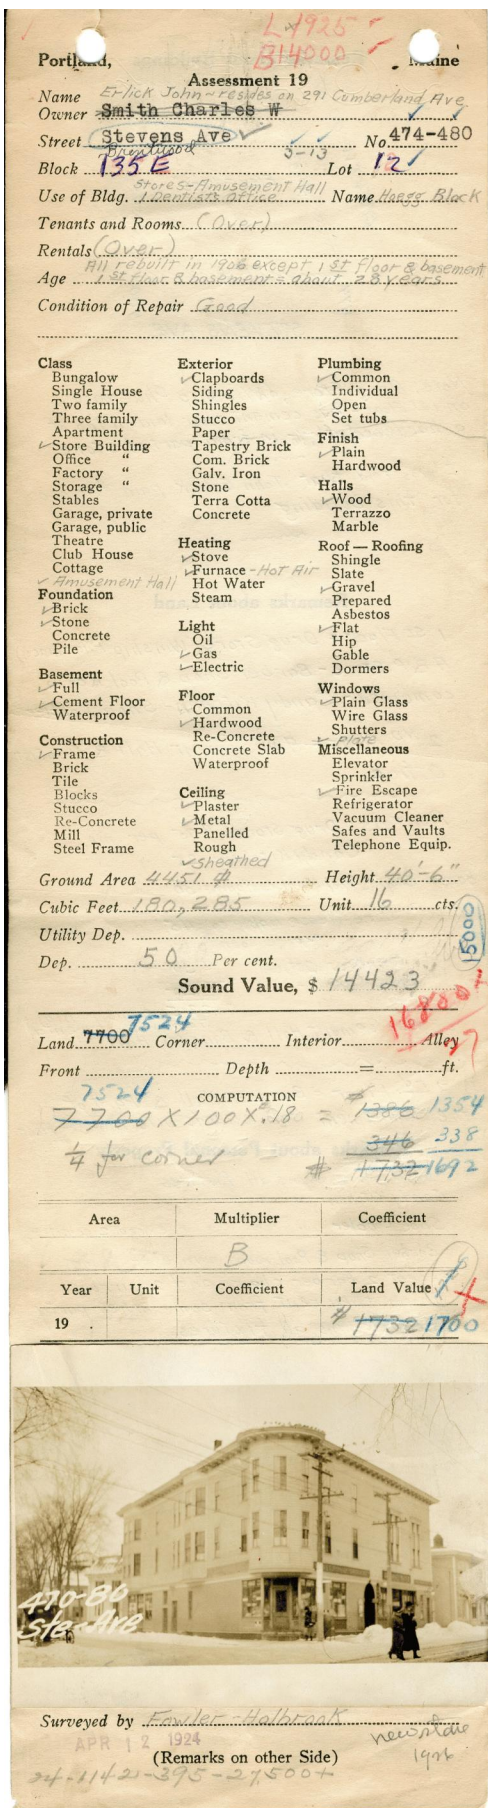 L 1925
B 14000
Portland, Maine
Assessment 19
Name Erlick John - resides on 291 Cumberland Ave
Owner Smith Charles W
Street Stevens Ave No. 474-480
Brentwood 5-13
Block 135 E Lot 12
Stores-Amusement Hall
Use of Bldg. 1 Dentist's Office Name Haegg Block
Tenants and Rooms (Over)
Rentals (Over)
All rebuilt in 1906 except 1st floor & basement
Age 1st floor & basement = about 28 years
Condition of Repair Good
Class
Bungalow
Single House
Two family
Three family
Apartment
✓ Store Building
Office "
Factory "
Storage "
Stables
Garage, private
Garage, public
Theatre
Club House
Cottage
✓ Amusement Hall
Foundation
✓ Brick
✓ Stone
Concrete
Pile
Basement
✓ Full
✓ Cement Floor
Waterproof
Construction
✓ Frame
Brick
Tile
Blocks
Stucco
Re-Concrete
Mill
Steel Frame
Exterior
✓ Clapboards
Siding
Shingles
Stucco
Paper
Tapestry Brick
Com. Brick
Galv. Iron
Stone
Terra Cotta
Concrete
Heating
✓ Stove
✓ Furnace - Hot Air
Hot Water
Steam
Light
Oil
✓ Gas
✓ Electric
Floor
Common
✓ Hardwood
Re-Concrete
Concrete Slab
Waterproof
Ceiling
✓ Plaster
✓ Metal
Panelled
Rough
✓ Sheathed
Plumbing
✓ Common
Individual
Open
Set tubs
Finish
✓ Plain
Hardwood
Halls
✓ Wood
Terrazzo
Marble
Roof — Roofing
Shingle
Slate
✓ Gravel
Prepared
Asbestos
✓ Flat
Hip
Gable
Dormers
Windows
✓ Plain Glass
Wire Glass
Shutters
✓ Plate
Miscellaneous
Elevator
Sprinkler
✓ Fire Escape
Refrigerator
Vacuum Cleaner
Safes and Vaults
Telephone Equip.
Ground Area 4451 Height 40'-6"
Cubic Feet 180,285 Unit 16 cts.
15000
Utility Dep.
Dep. 50 Per cent.
Sound Value, $ 14423
16800
7524
Land 7700 Corner Interior Alley
Front Depth = ft.
7524 COMPUTATION
7700 X 100 X .18 = $1386 1354
1/4 for corner 346 338
$ 1732 1692
Area Multiplier Coefficient
B
Year Unit Coefficient Land Value
19 . $ 1732 1700
470-86
Ste- Ave
Surveyed by Fowler - Holbrook
APR 12 1924
new store
1926
(Remarks on other Side)
24-1142-395-27,500+